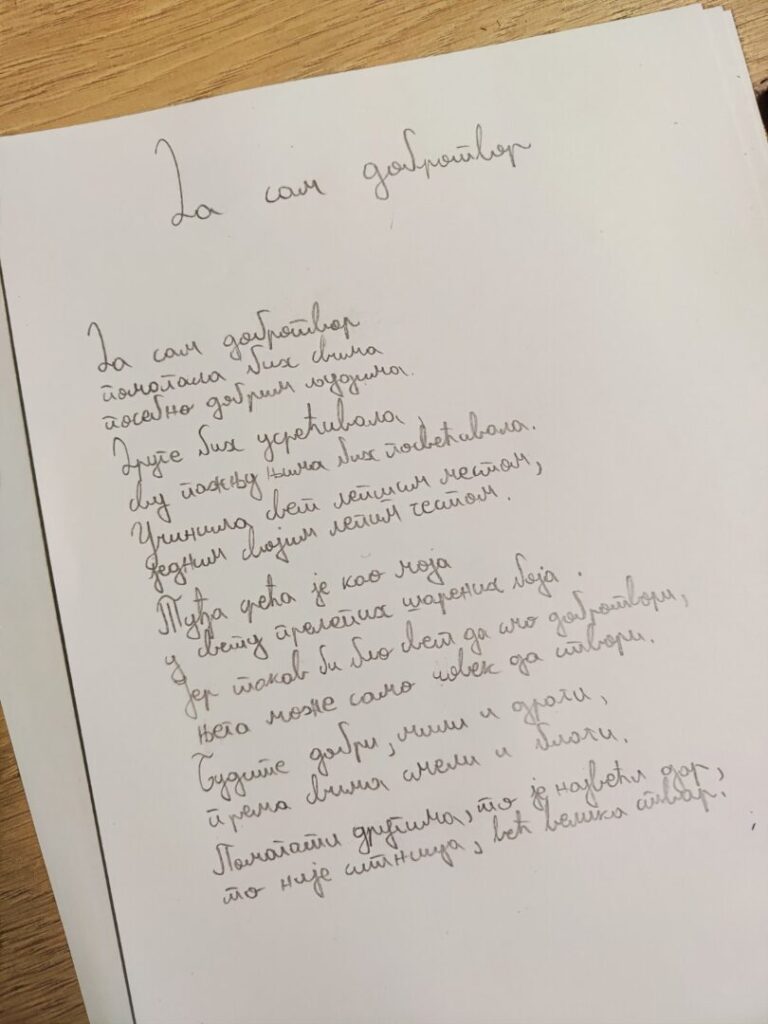 Да сам добротвор
Да сам добротвор
помогала бих свима
посебно добрим људима.
Друге бих усрећивала,
сву пажњу њима бих посвећивала.
Учинила свет лепшим местом,
једним својим лепим гестом.
Туђа срећа је као моја
у свету прелепих шарених боја.
Јер такав би био свет да смо добротвори,
њега може само човек да створи.
Будите добри, мили и драги,
према свима смели и благи.
Помагати другима, то је највећи дар,
то није ситница, већ велика ствар.